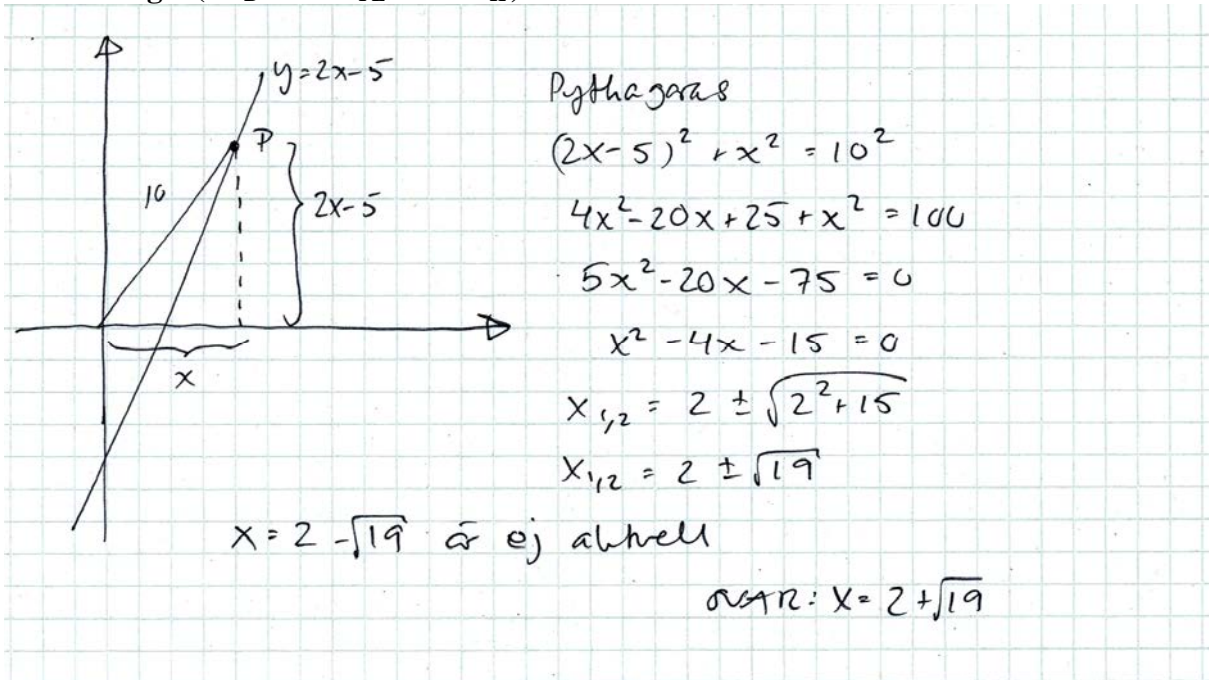 y=2x-5
P
10
2x-5
x
Pythagoras
(2x-5)² + x² = 10²
4x² - 20x + 25 + x² = 100
5x² - 20x - 75 = 0
x² - 4x - 15 = 0
x₁,₂ = 2 ± √(2²+15)
x₁,₂ = 2 ± √19
x = 2 - √19 är ej aktuell
SVAR: x = 2 + √19